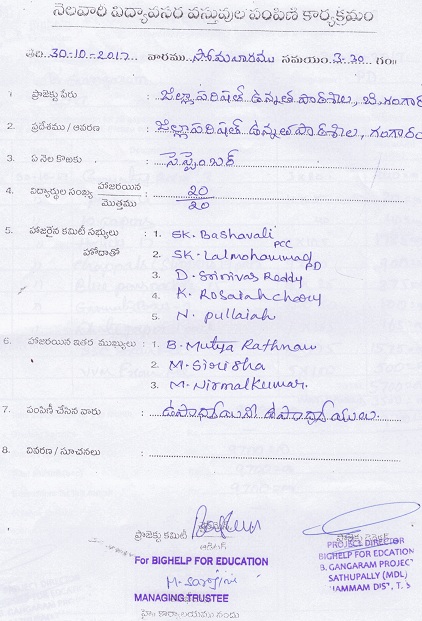 నెలవారి విద్యావసర వస్తువుల పంపిణి కార్యక్రమం
తేది.30-10-2017. వారము..సోమవారము సమయం.3-30. గం॥
1. ప్రాజెక్టు పేరు : జిల్లా పరిషత్ ఉన్నత పాఠశాల, బి.గంగారం
2. ప్రదేశము / ఆవరణ : జిల్లా పరిషత్ ఉన్నత పాఠశాల, గంగారం
3. ఏ నెల కొఱకు : సెప్టెంబర్
4. విద్యార్థుల సంఖ్య హాజరయిన / మొత్తము : 20 / 20
5. హాజరైన కమిటీ సభ్యులు : 1. SK. Bashavali PCC
హోదాతో 2. SK. Lalmohammad PD
3. D. Srinivas Reddy
4. K. Rosaiahchary
5. N. Pullaiah
6. హాజరయిన ఇతర ముఖ్యులు : 1. B. Mutya Rathnam
2. M. Sirisha
3. M. Nirmalkumar.
7. పంపిణీ చేసిన వారు : ఉపాధ్యాయిని ఉపాధ్యాయులు.
8. వివరణ / సూచనలు :
ప్రాజెక్టు కమిటీ
For BIGHELP FOR EDUCATION
M. Sarojini
MANAGING TRUSTEE
హై॥ కార్యాలయము నందు
PROJECT DIRECTOR
BIGHELP FOR EDCATION
B. GANGARAM PROJECT
SATHUPALLY (MDL)
HAMMAM DIST, T. S